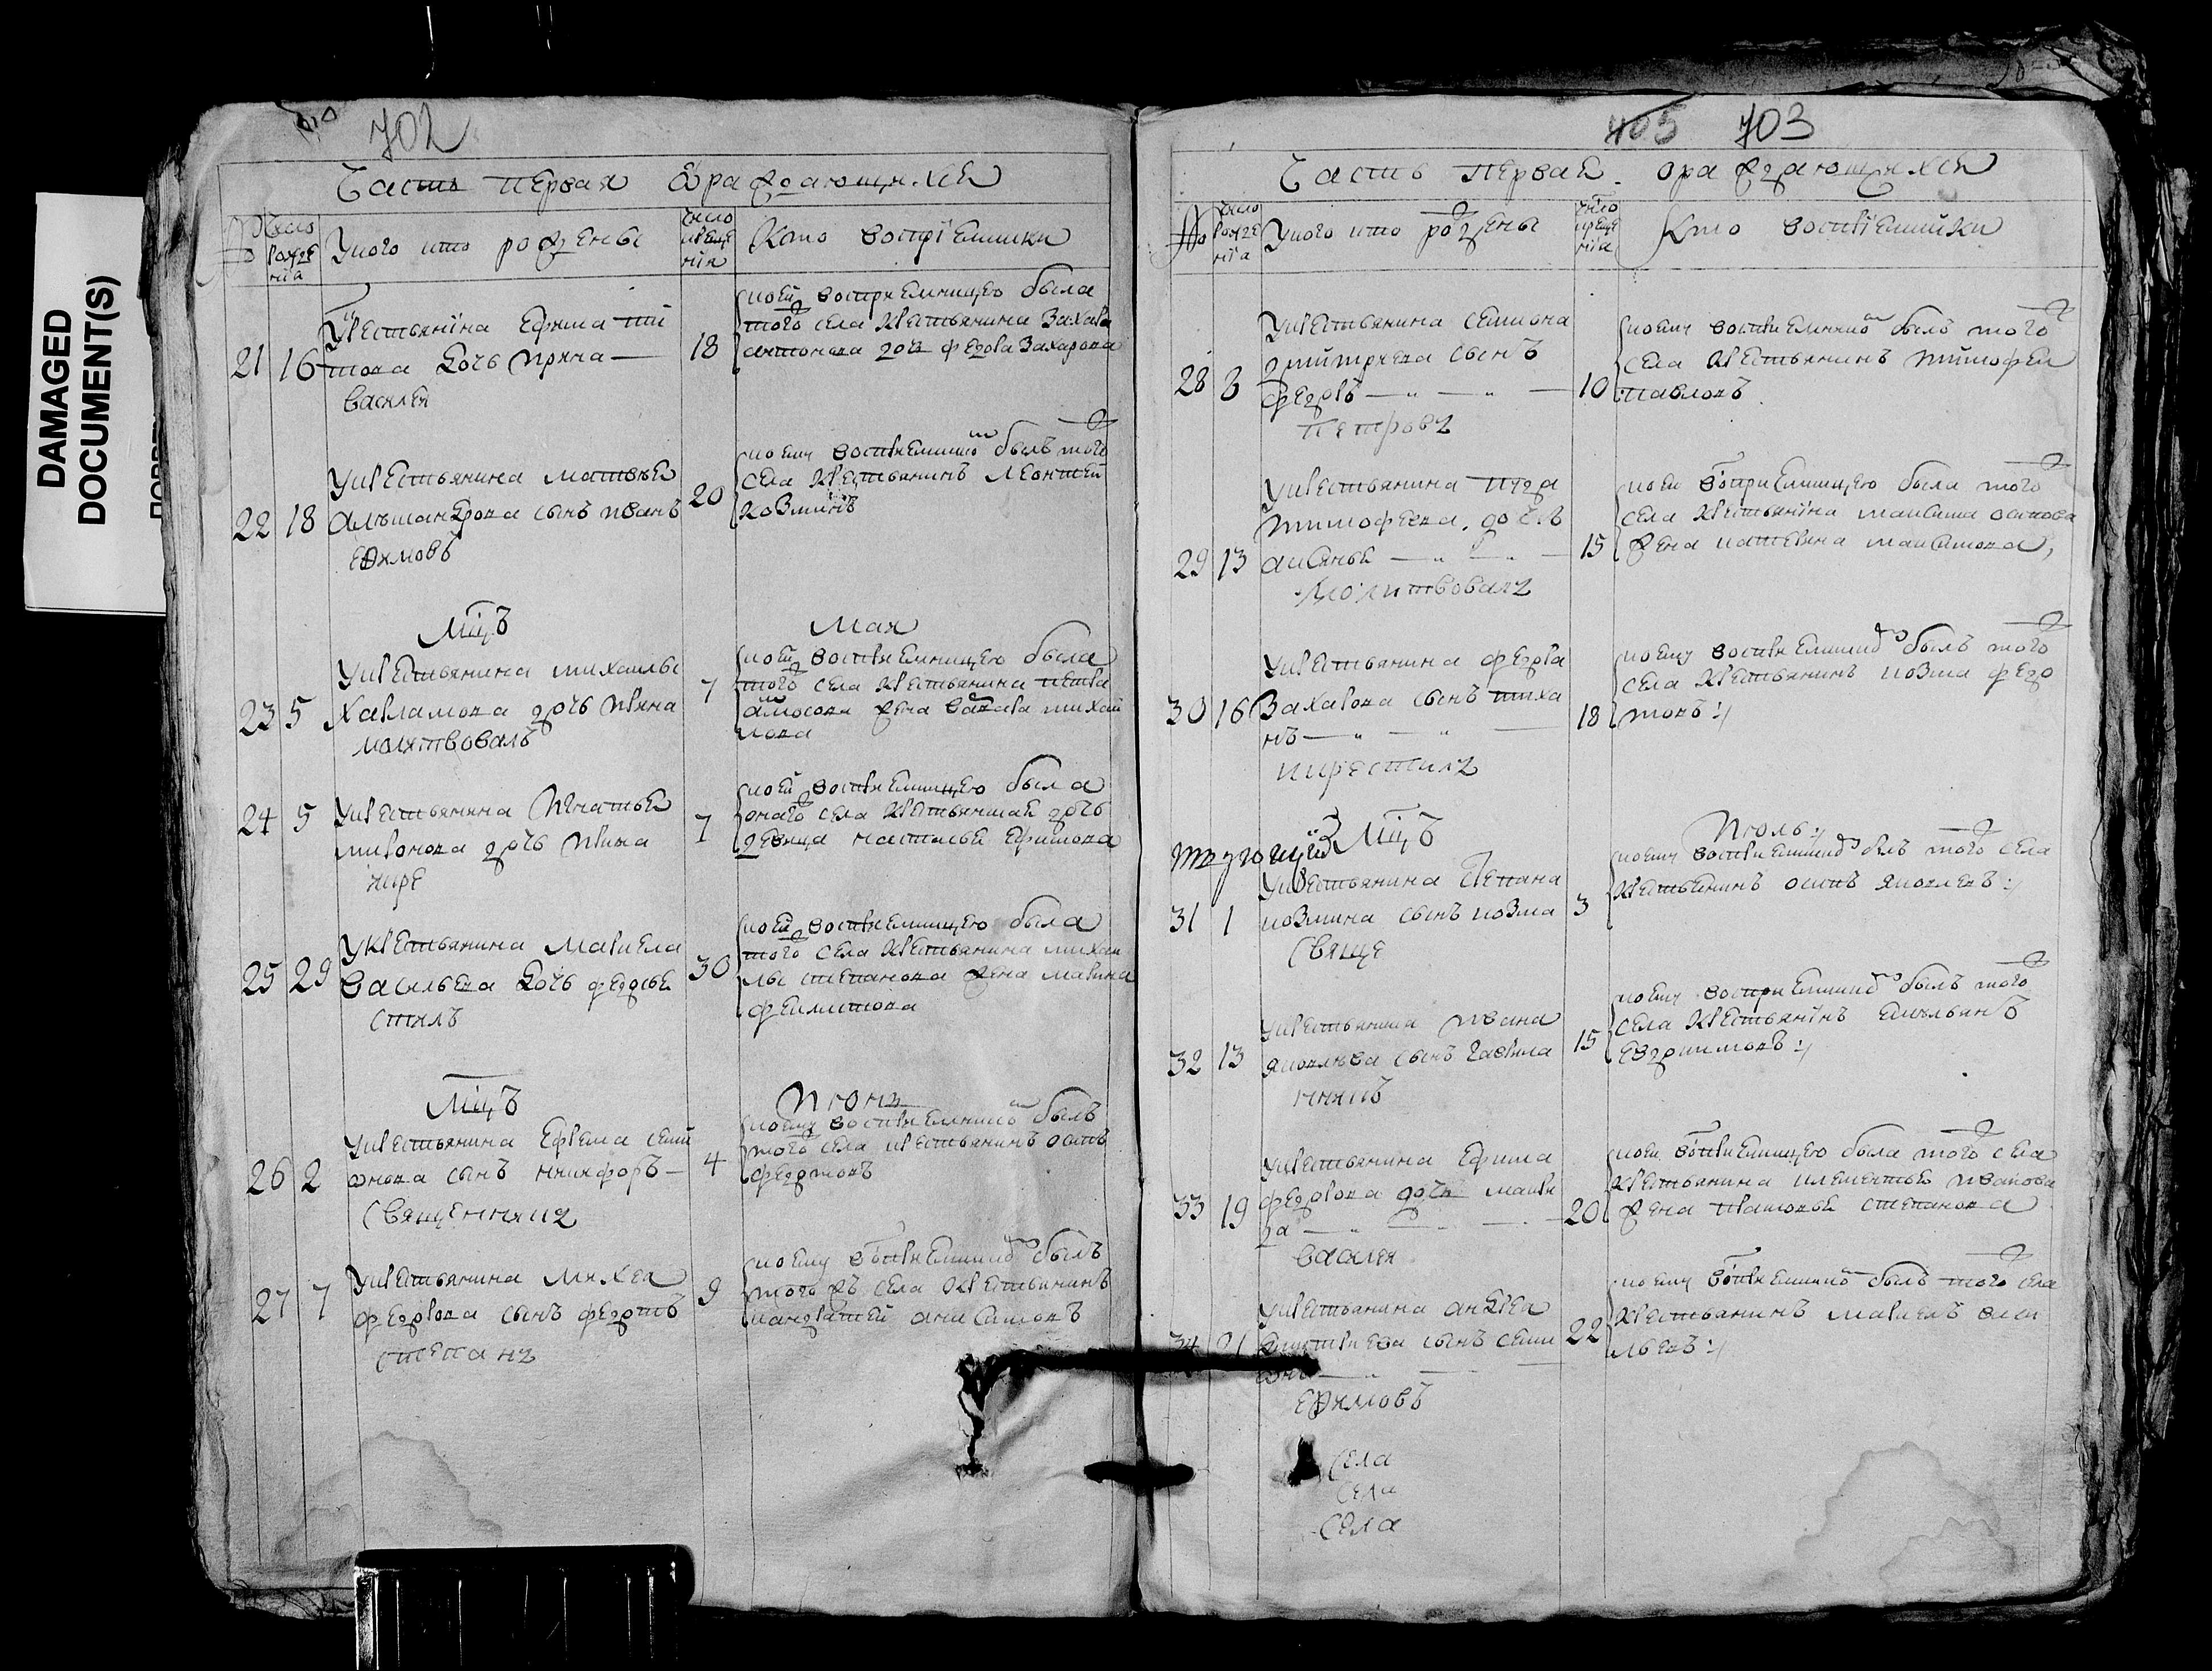 DAMAGED
DOCUMENT(S)
702
Часть первая о раждающихся
Число рожде нїа
У кого кто рождены
число креще нїя
Кто воспрїемники
21 16 У крестьянина Ефима ти
това дочь ирина —
василеи
18
коей восприемницею была
того села крестьянина Захара
антонова дочь федора Захарова
22 18 У крестьянина матвѣя
алѣѯандрова сынъ иванъ
ефимовъ
20
коему восприемником былъ того
села крестьянинъ Леонтей
козминъ
Мцъ Мая
23 5 У крестьянина михаилы
Харламова дочь ирина
молитвовалъ
7
коей восприемницею была
того села крестьянина петра
амосова жена варвара михаи
лова
24 5 У крестьянина Игнатья
миронова дочь ирина
кре
7
коей восприемницею была
онаго села крестьянская дочь
девица настасья Ефимова
25 29 У крестьянина Маркела
васильева дочь федосья
стилъ
30
коей восприемницею была
того села крестьянина михаи
лы степанова жена марина
феилистова
Мцъ Июнь
26 2 У крестьянина Ефрема семи
онова сынъ никифоръ —
священникъ
4
коему восприемником былъ
того села крестьянинъ осипъ
федотовъ
27 7 У крестьянина Михея
федорова сынъ федотъ
степанъ
9
коему восприемником былъ
того жъ села крестьянинъ
кандратей анисимовъ
405 703
Часть первая о раждающихся
№ число рожде нїа
У кого кто рожены
число креще нїя
Кто воспрїемники
28 8 У крестьянина семиона
дмитриева сынъ
федоръ — „ — „ —
петровъ
10
коему восприемником былъ того
села крестьянинъ тимофеи
павловъ
29 13 У крестьянина
тимофеева дочь
аксинья — „ — „ —
молитвовалъ
15
коей восприемницею была того
села крестьянина максима осипова
жена катерина максимова
30 16 У крестьянина федора
Захарова сынъ тихо
нъ — „ — „ —
и крестилъ
18
коему восприемником былъ того
села крестьянинъ козма федо
товъ :/
Мцъ Июль :/
31 1 У крестьянина степана
козмина сынъ козма
свяще
3
коему восприемником былъ того села
крестьянинъ осипъ яковлевъ :/
32 13 У крестьянина ивана
яковлева сынъ гаврила
нникъ
15
коему восприемником былъ того
села крестьянинъ емельянъ
евдокимовъ :/
33 19 У крестьянина Ефима
федорова дочь макри
да — „ —
василеи
20
коей восприемницею была того села
крестьянина клементья иванова
жена парасковья степанова
34 21 У крестьянина андрея
дмитриева сынъ семи
онъ — „ —
ефимовъ
22
коему восприемником былъ того села
крестьянинъ маркелъ васи
льевъ :/
села
села
села